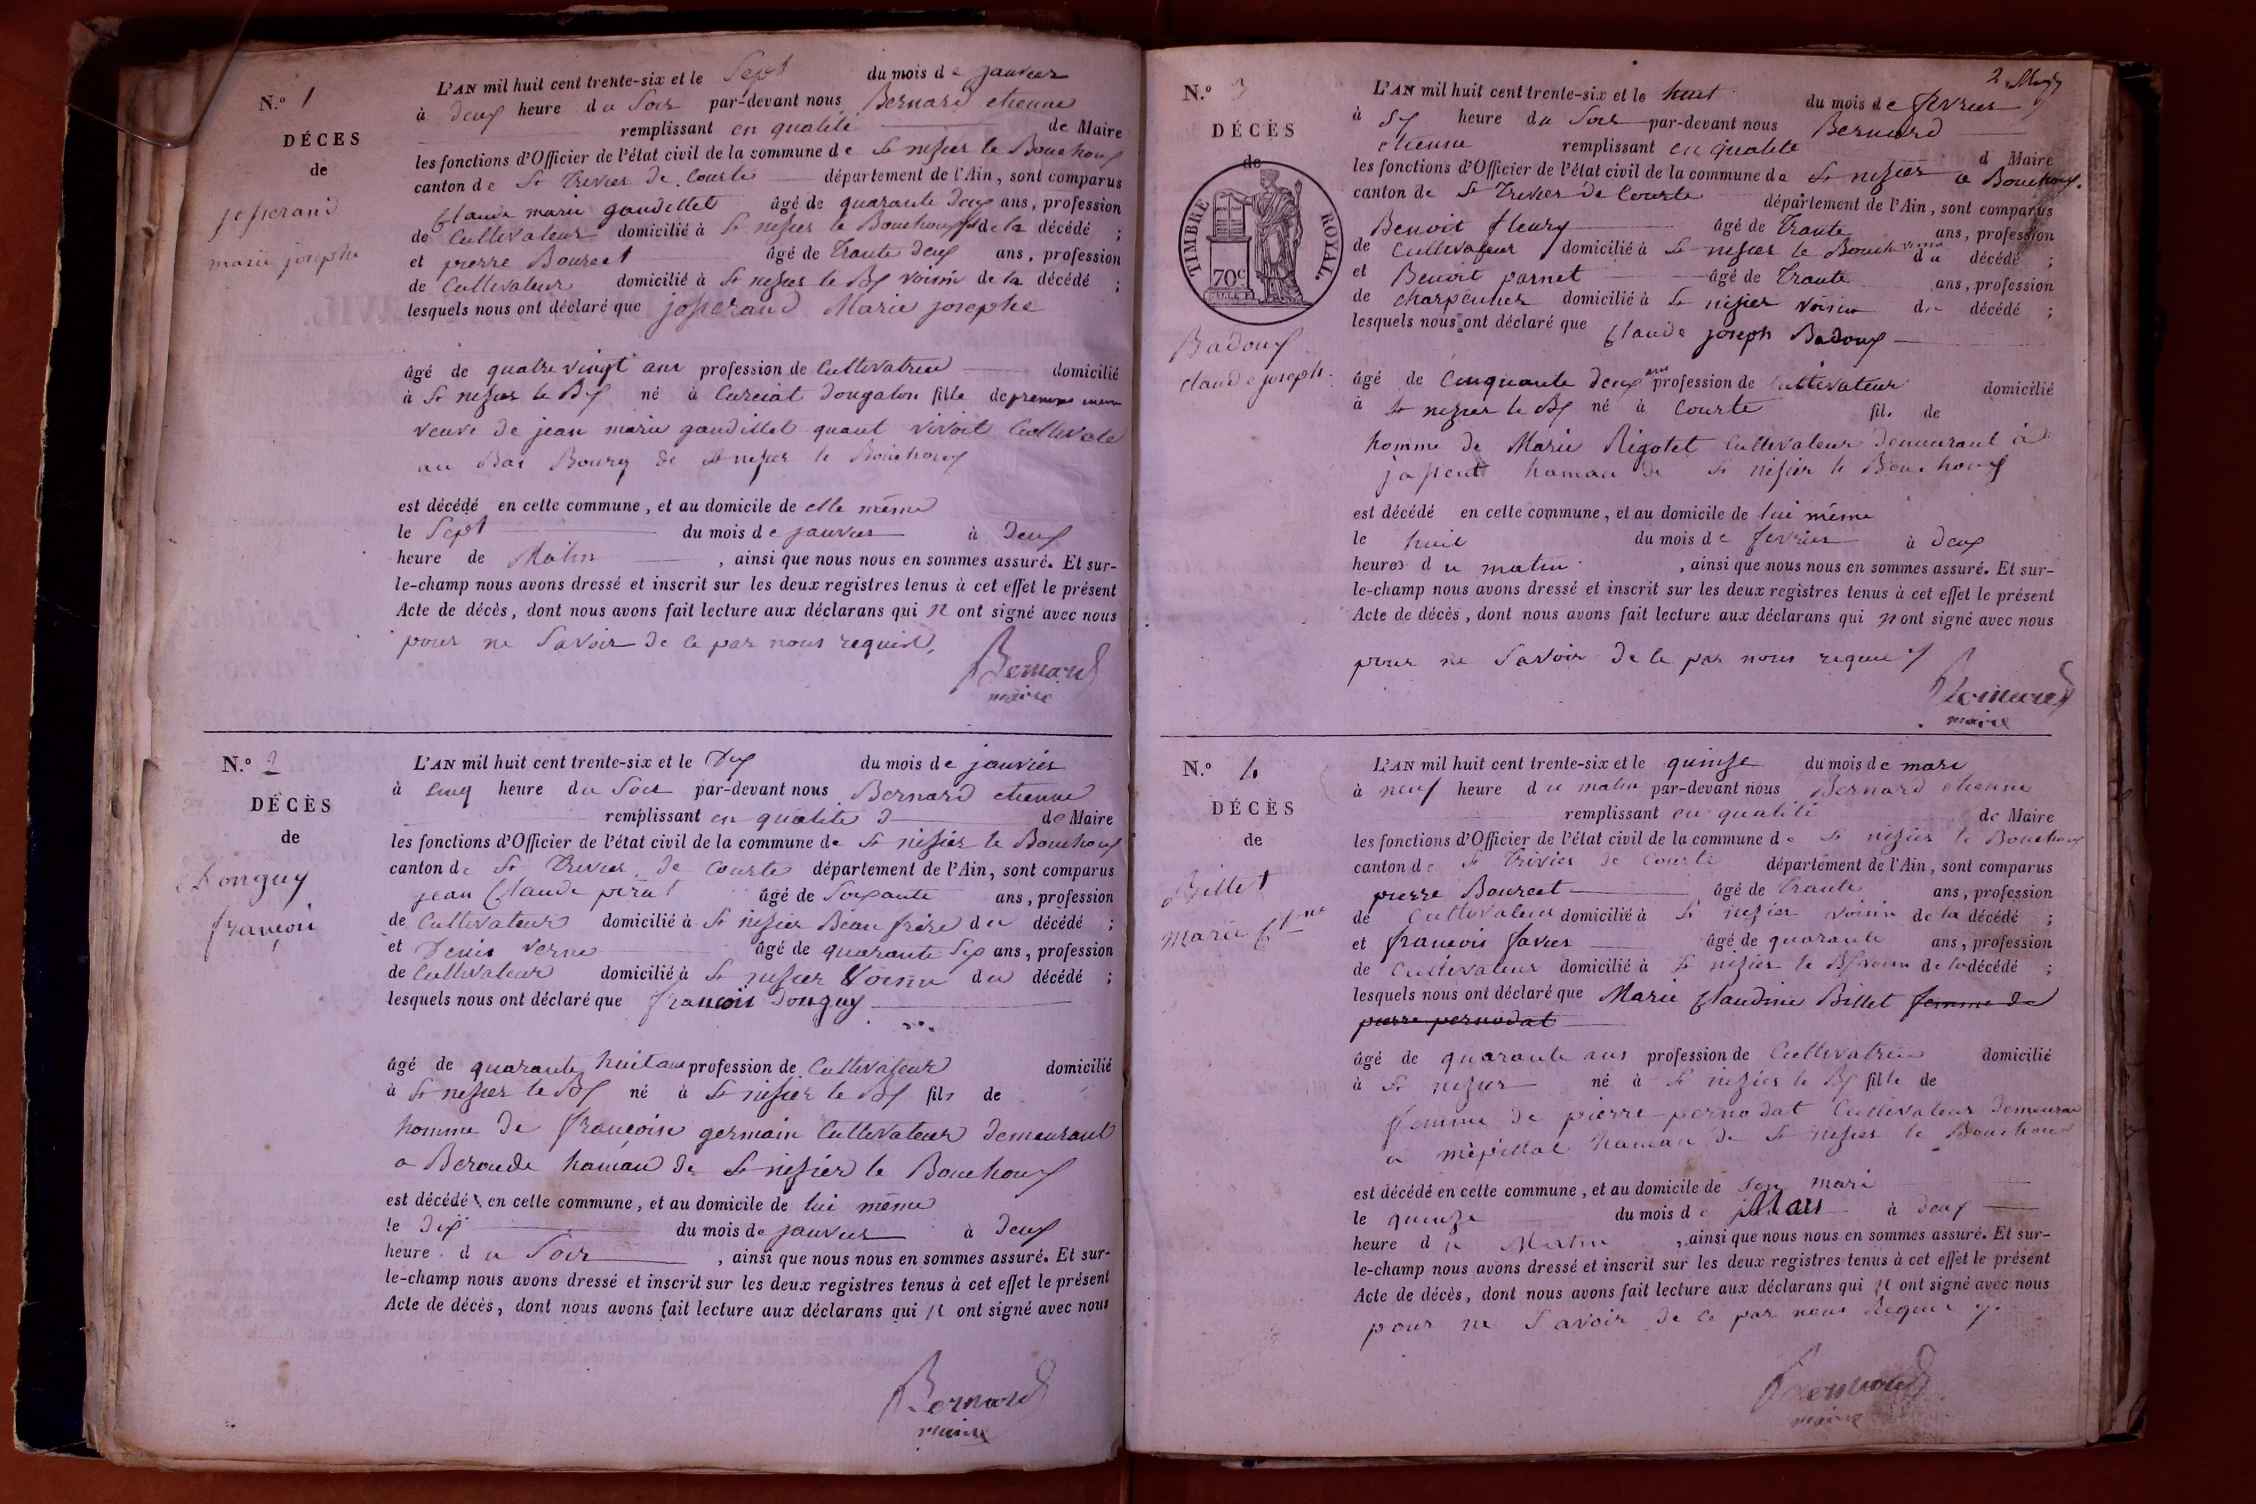 N.º 1
DÉCES
de
josserand
marie josephe
L'AN mil huit cent trente-six et le Sept du mois de janvier
à deux heure du Soir par-devant nous Bernard etienne
remplissant en qualité de Maire
les fonctions d'Officier de l'état civil de la commune de St nisier le Bouchoux
canton de St Trivier de Courte département de l'Ain, sont comparus
Claude marie gaudillet âgé de quarante deux ans, profession
de Cultivateur domicilié à St nisier le Bouchoux de la décédé ;
et pierre Bourcet âgé de Trante deux ans, profession
de Cultivateur domicilié à St nisier le Bx voisin de la décédé ;
lesquels nous ont déclaré que josserand Marie josephe
âgé de quatre vingt ans profession de Cultivatrice domicilié
à St nisier le Bx né à Curciat dongalon fille de
veuve de jean marie gaudillet quant vivoit Cultivate
au Bas Bourg de St nisier le Bouchoux
est décédé en cette commune, et au domicile de elle même
le Sept du mois de janvier à deux
heure de Matin , ainsi que nous nous en sommes assuré. Et sur-
le-champ nous avons dressé et inscrit sur les deux registres tenus à cet effet le présent
Acte de décès, dont nous avons fait lecture aux déclarans qui n ont signé avec nous
pour ne Savoir de ce par nous requis
Bernard
maire
N.º 2
DÉCÈS
de
Donguy
françois
L'AN mil huit cent trente-six et le Dix du mois de janvier
à cinq heure du Soir par-devant nous Bernard etienne
remplissant en qualité d de Maire
les fonctions d'Officier de l'état civil de la commune de St nisier le Bouchoux
canton de St Trivier de Courte département de l'Ain, sont comparus
jean Claude perat âgé de Soixante ans, profession
de Cultivateur domicilié à St nisier Beau frère du décédé ;
et Denis Verne âgé de quarante Six ans, profession
de Cultivateur domicilié à St nisier Voisin du décédé ;
lesquels nous ont déclaré que françois Donguy
âgé de quarante huit ans profession de Cultivateur domicilié
à St nisier le Bx né à St nisier le Bx fils de
homme de françoise germain Cultivateur demeurant
a Beroude hamau de St nisier le Bouchoux
est décédé en cette commune, et au domicile de lui même
le dix du mois de janvier à deux
heure du Soir , ainsi que nous nous en sommes assuré. Et sur-
le-champ nous avons dressé et inscrit sur les deux registres tenus à cet effet le présent
Acte de décès, dont nous avons fait lecture aux déclarans qui n ont signé avec nous
Bernard
maire
2
N.º 3
DÉCÈS
de
TIMBRE ROYAL.
70c
Badoux
Claude joseph
L'AN mil huit cent trente-six et le huit du mois de fevrier
à Six heure du Soir par-devant nous Bernard
etienne remplissant en qualité d Maire
les fonctions d'Officier de l'état civil de la commune de St nisier le Bouchoux
canton de St Trivier de Courte département de l'Ain, sont comparus
Benoit fleury âgé de Trante ans, profession
de Cultivateur domicilié à St nisier le Bouch voisin du décédé ;
et Benoit parnet âgé de Trante ans, profession
de charpentier domicilié à St nisier voisin du décédé ;
lesquels nous ont déclaré que Claude joseph Badoux
âgé de Cinquante deux ans profession de Cultivateur domicilié
à St nisier le Bx né à Courte fils de
homme de Marie Rigotet Cultivateur demeurant à
hamau de St nisier le Bouchoux
est décédé en cette commune, et au domicile de lui même
le huit du mois de fevrier à deux
heures du matin , ainsi que nous nous en sommes assuré. Et sur-
le-champ nous avons dressé et inscrit sur les deux registres tenus à cet effet le présent
Acte de décès, dont nous avons fait lecture aux déclarans qui n ont signé avec nous
pour ne Savoir de ce par nous requis
Bernard
maire
N.º 4
DÉCÈS
de
Billet
Marie Cl.ne
L'AN mil huit cent trente-six et le quinze du mois de mars
à neuf heure du matin par-devant nous Bernard etienne
remplissant en qualité de Maire
les fonctions d'Officier de l'état civil de la commune de St nisier le Bouchoux
canton de St Trivier de Courte département de l'Ain, sont comparus
pierre Bourcet âgé de Trante ans, profession
de Cultivateur domicilié à St nisier voisin de la décédé ;
et francois favier âgé de quarante ans, profession
de Cultivateur domicilié à St nisier le Bx voisin de la décédé ;
lesquels nous ont déclaré que Marie Claudine Billet femme de
pierre pernodat
âgé de quarante ans profession de Cultivatrice domicilié
à St nisier né à St nisier le Bx fille de
femme de pierre pernodat Cultivateur demeuran
a mépillat hamau de St nisier le Bouchoux
est décédé en cette commune, et au domicile de Son mari
le quinze du mois de Mars à deux
heure du Matin , ainsi que nous nous en sommes assuré. Et sur-
le-champ nous avons dressé et inscrit sur les deux registres tenus à cet effet le présent
Acte de décès, dont nous avons fait lecture aux déclarans qui n ont signé avec nous
pour ne Savoir de ce par nous Requis
Bernard
maire